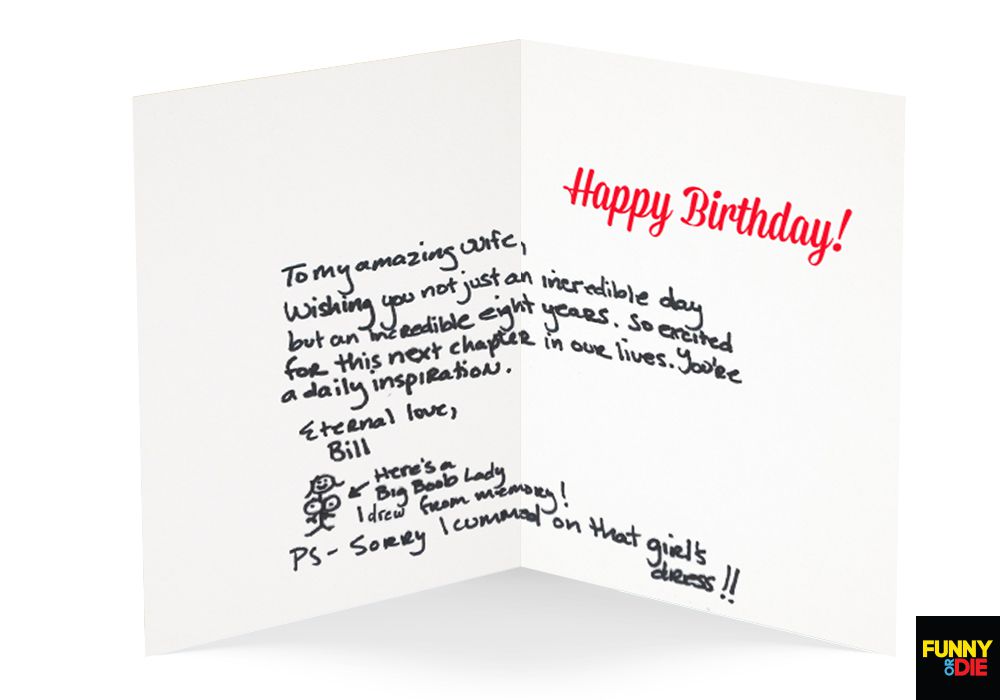 Happy Birthday!
To my amazing wife,
Wishing you not just an incredible day
but an incredible eight years. So excited
for this next chapter in our lives. You're
a daily inspiration.
Eternal love,
Bill
Here's a
Big Boob Lady
I drew from memory!
PS - Sorry I cummed on that girl's
dress!!
FUNNY
OR
DIE